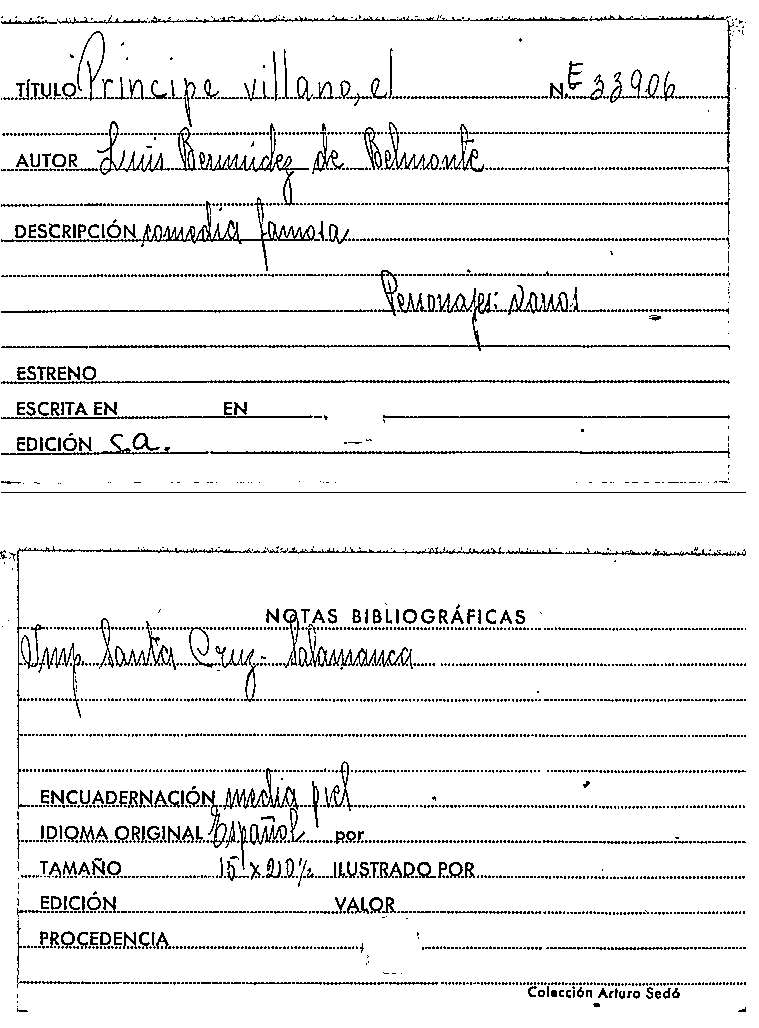 TÍTULO Príncipe villano, el N.º E 33906
AUTOR Luis Bermúdez de Belmonte
DESCRIPCIÓN comedia famosa
Personajes: varios
ESTRENO
ESCRITA EN EN
EDICIÓN s.a.
NOTAS BIBLIOGRÁFICAS
Imp Santa Cruz - Salamanca
ENCUADERNACIÓN media piel
IDIOMA ORIGINAL Español por
TAMAÑO 15 x 210% ILUSTRADO POR
EDICIÓN VALOR
PROCEDENCIA
Colección Arturo Sedó